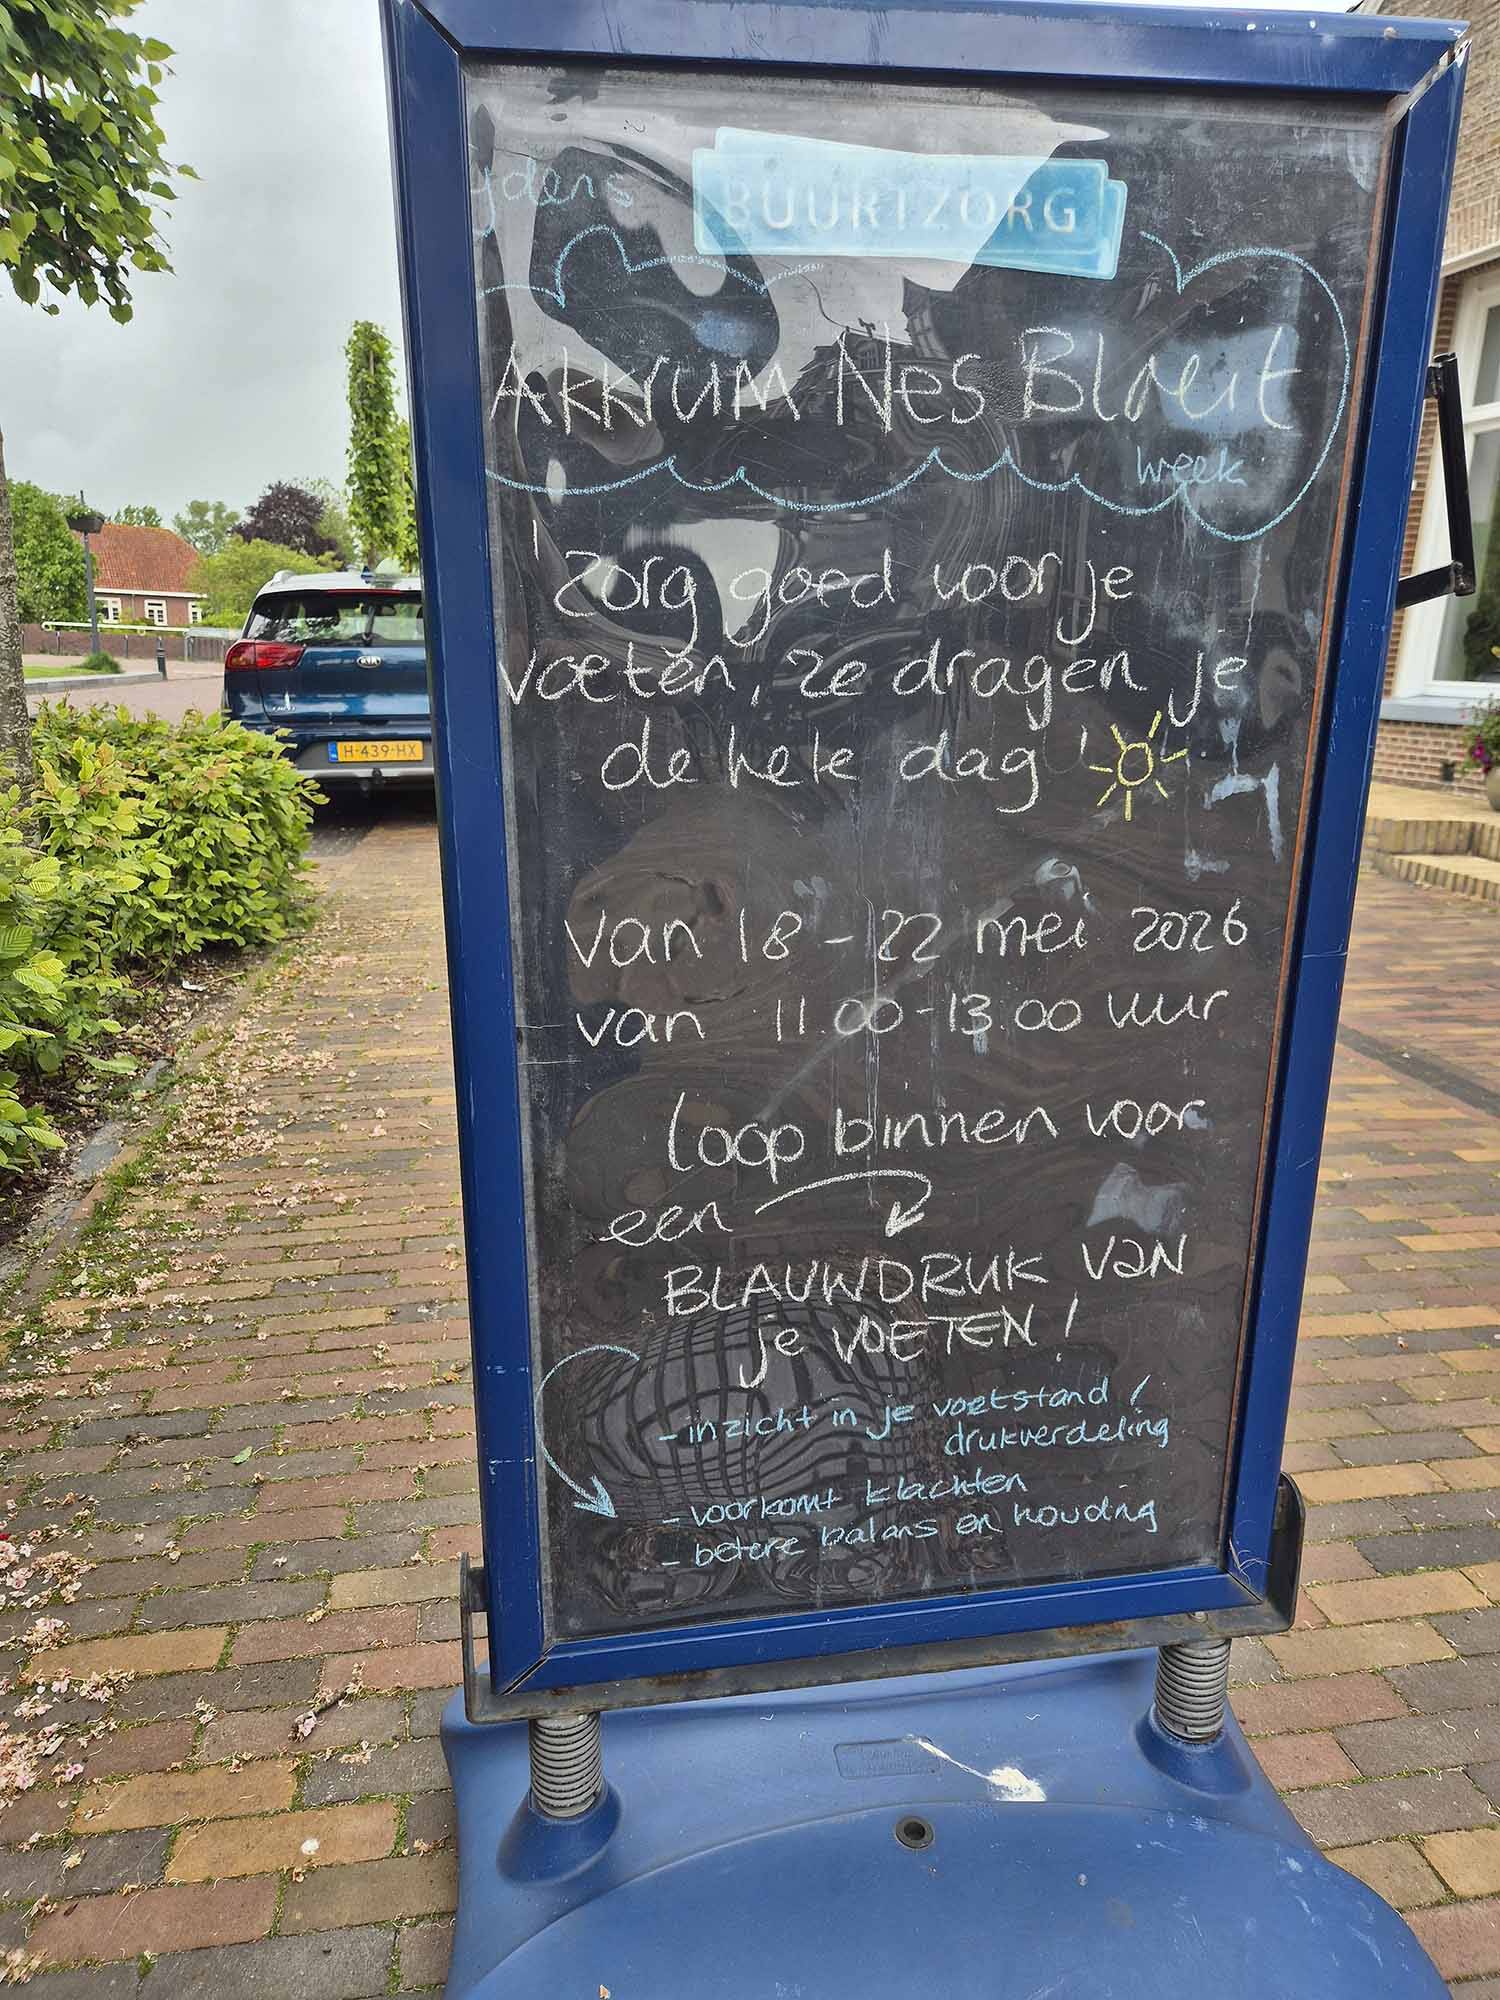 BUURTZORG
ydens
Akkrum Nes Bloeit
week
'Zorg goed voor je
voeten, ze dragen je
de hele dag'
van 18 - 22 mei 2026
van 11.00 - 13.00 uur
loop binnen voor
een
BLAUWDRUK van
je VOETEN!
- inzicht in je voetstand /
drukverdeling
- voorkomt klachten
- betere balans en houding
KIA
H-439-HX